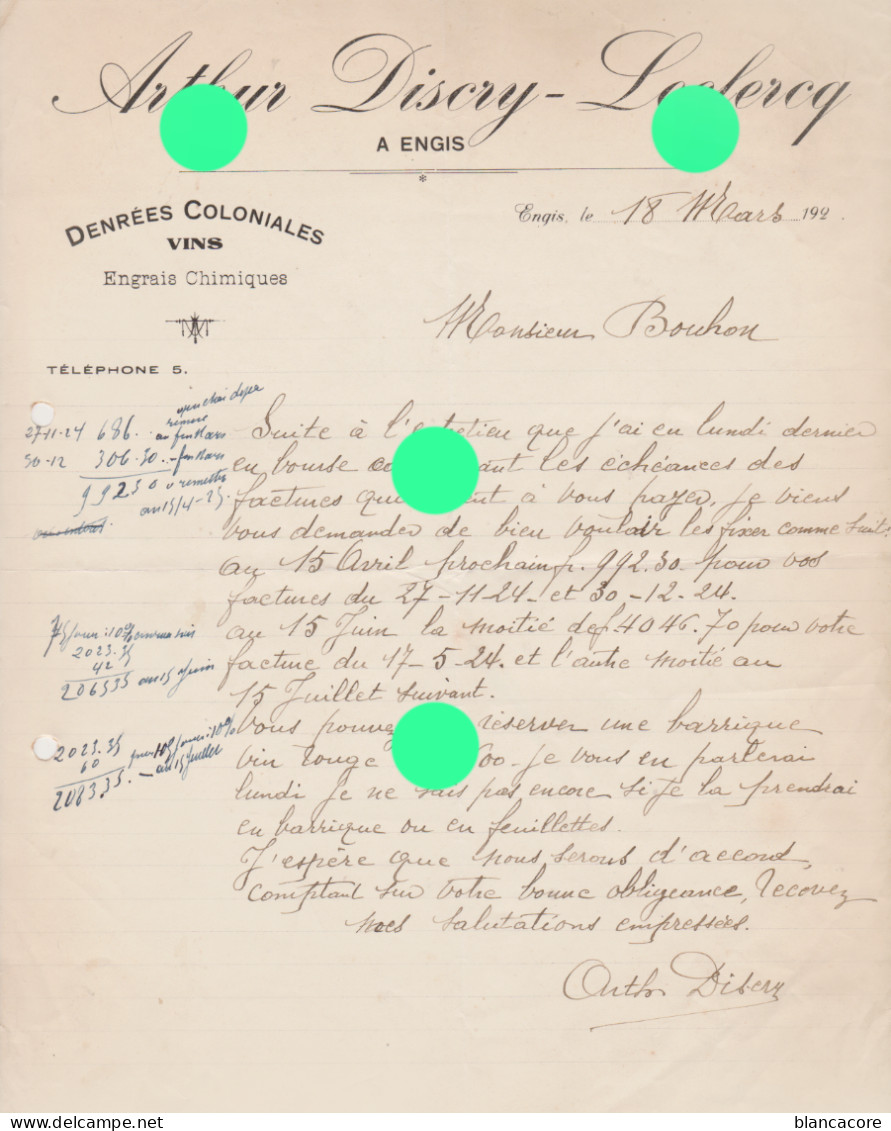 Arthur Discry - Leclercq
A ENGIS
DENRÉES COLONIALES
VINS
Engrais Chimiques
TÉLÉPHONE 5.
Engis, le 18 Mars 192
Monsieur Bouhon
Suite à l'entretien que j'ai eu lundi dernier
en bourse les échéances des
factures que à vous payer, je viens
vous demander de bien vouloir les fixer comme suit:
au 15 Avril prochain fr. 992.30. pour vos
factures du 27-11-24. et 30-12-24.
au 15 Juin la moitié de f. 4046.70 pour votre
facture du 17-5-24. et l'autre moitié au
15 Juillet suivant.
Vous pouvez réserver une barrique
vin rouge je vous en parlerai
lundi je ne sais pas encore si je la prendrai
en barrique ou en feuillettes.
J'espère que nous serons d'accord,
comptant sur votre bonne obligeance, recevez
mes salutations empressées.
Arth. Discry
27-11-24 686. au fin Mars
30-12 306.30. - fin Mars
992 30
au 15/4-25.
2023.35
42
2065 35 au 15 Juin
2023.35
60
2083.35. - au 15 Juillet
blancacore